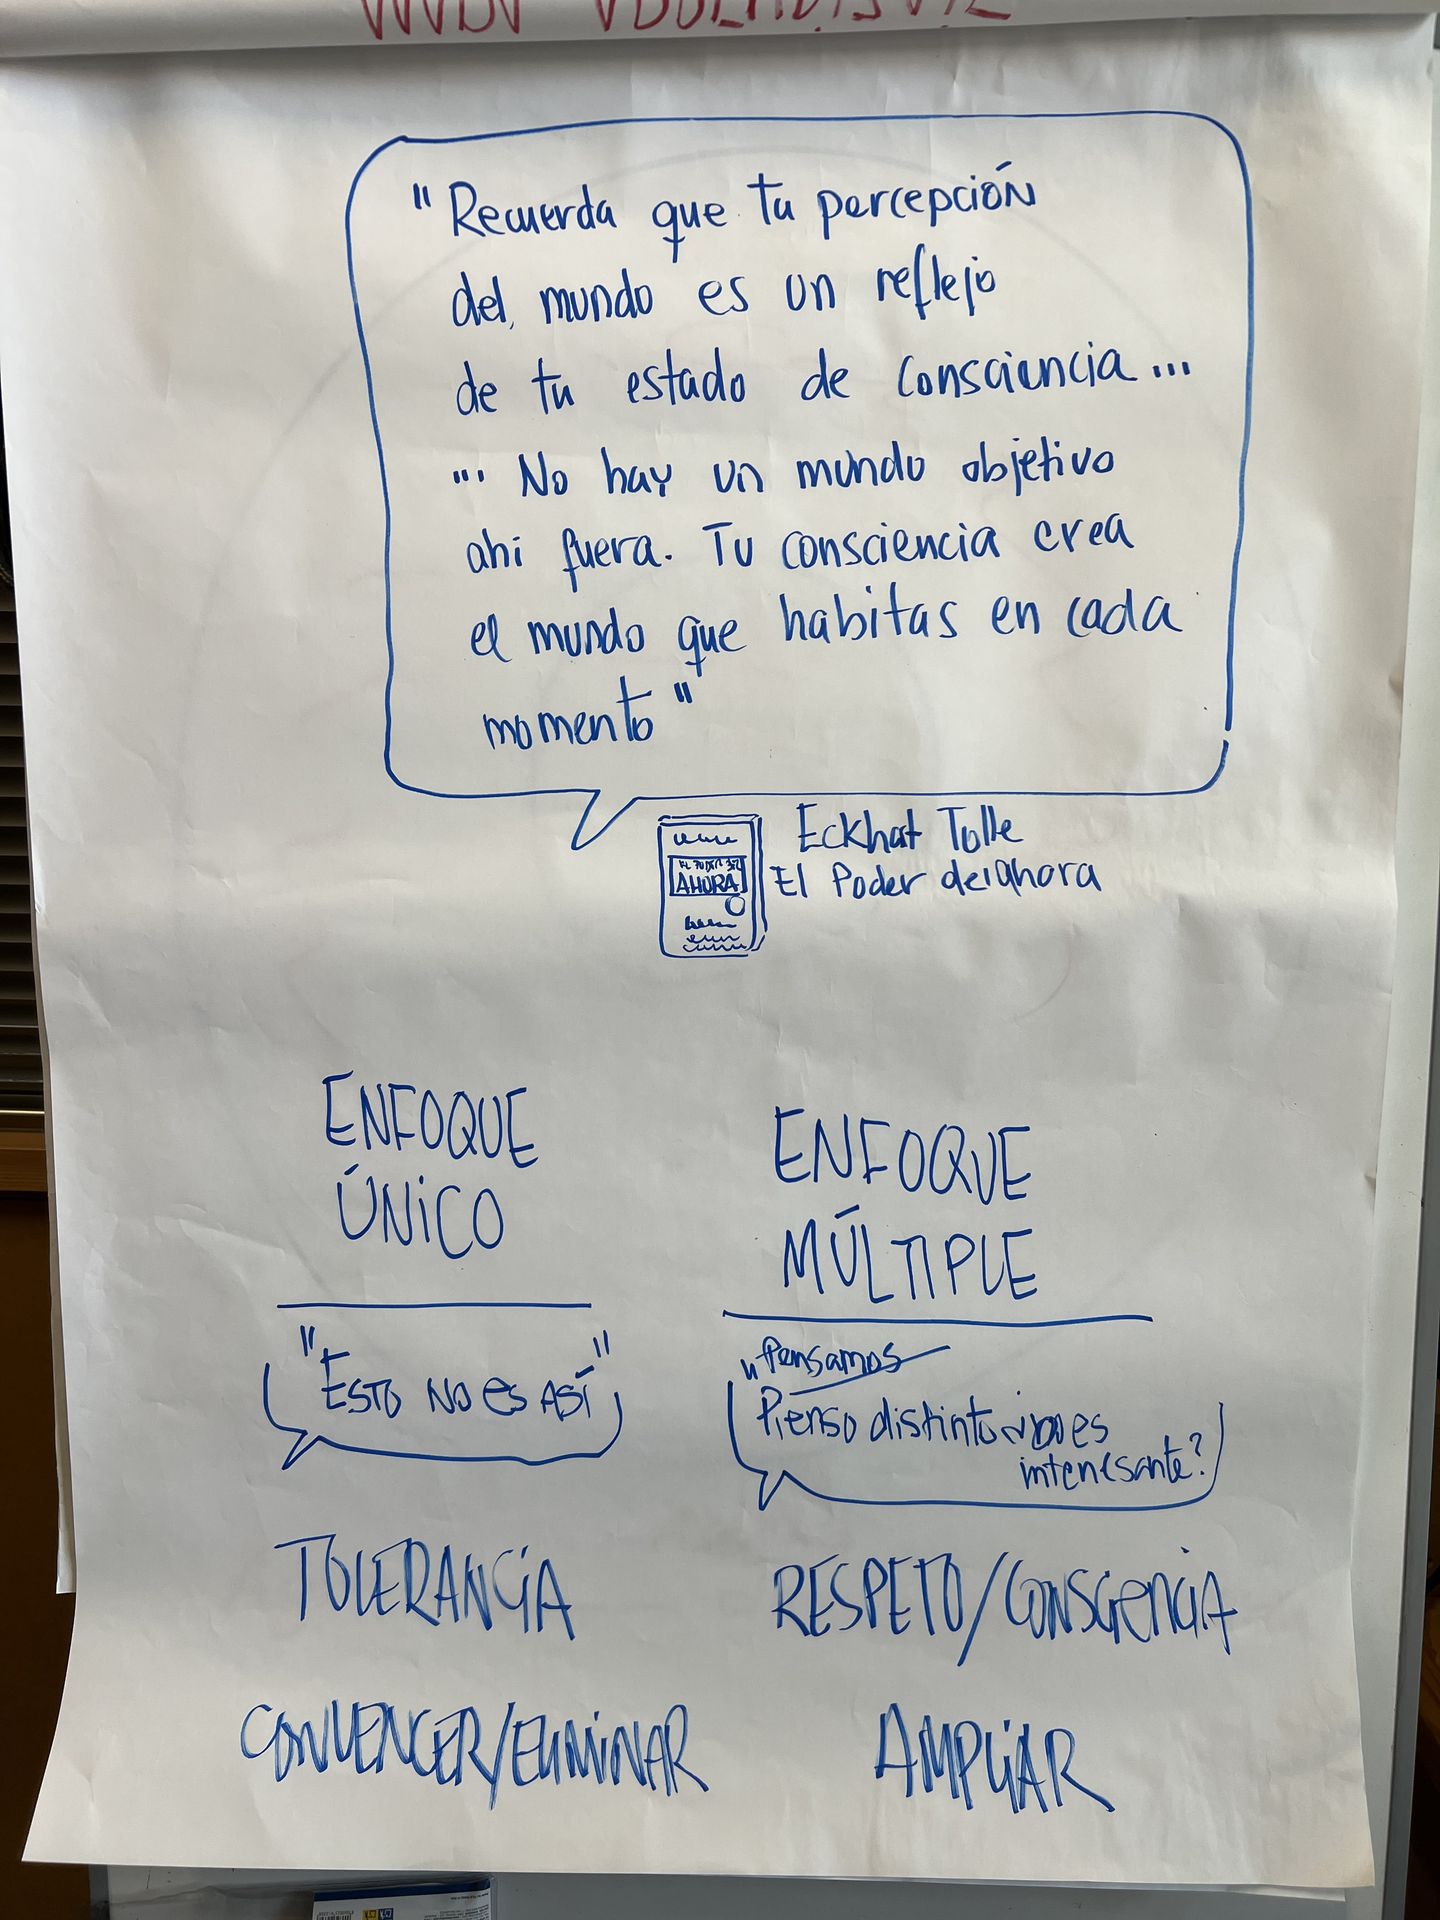 "Recuerda que tu percepción
del mundo es un reflejo
de tu estado de consciencia...
... No hay un mundo objetivo
ahi fuera. Tu consciencia crea
el mundo que habitas en cada
momento"
Eckhat Tolle
El Poder del ahora
EL PODER DEL
AHORA
ENFOQUE
ÚNICO
"ESTO NO ES ASÍ"
TOLERANCIA
CONVENCER/ELIMINAR
ENFOQUE
MÚLTIPLE
"Pensamos
Pienso distinto ¿no es
interesante?
RESPETO/CONSCIENCIA
AMPLIAR